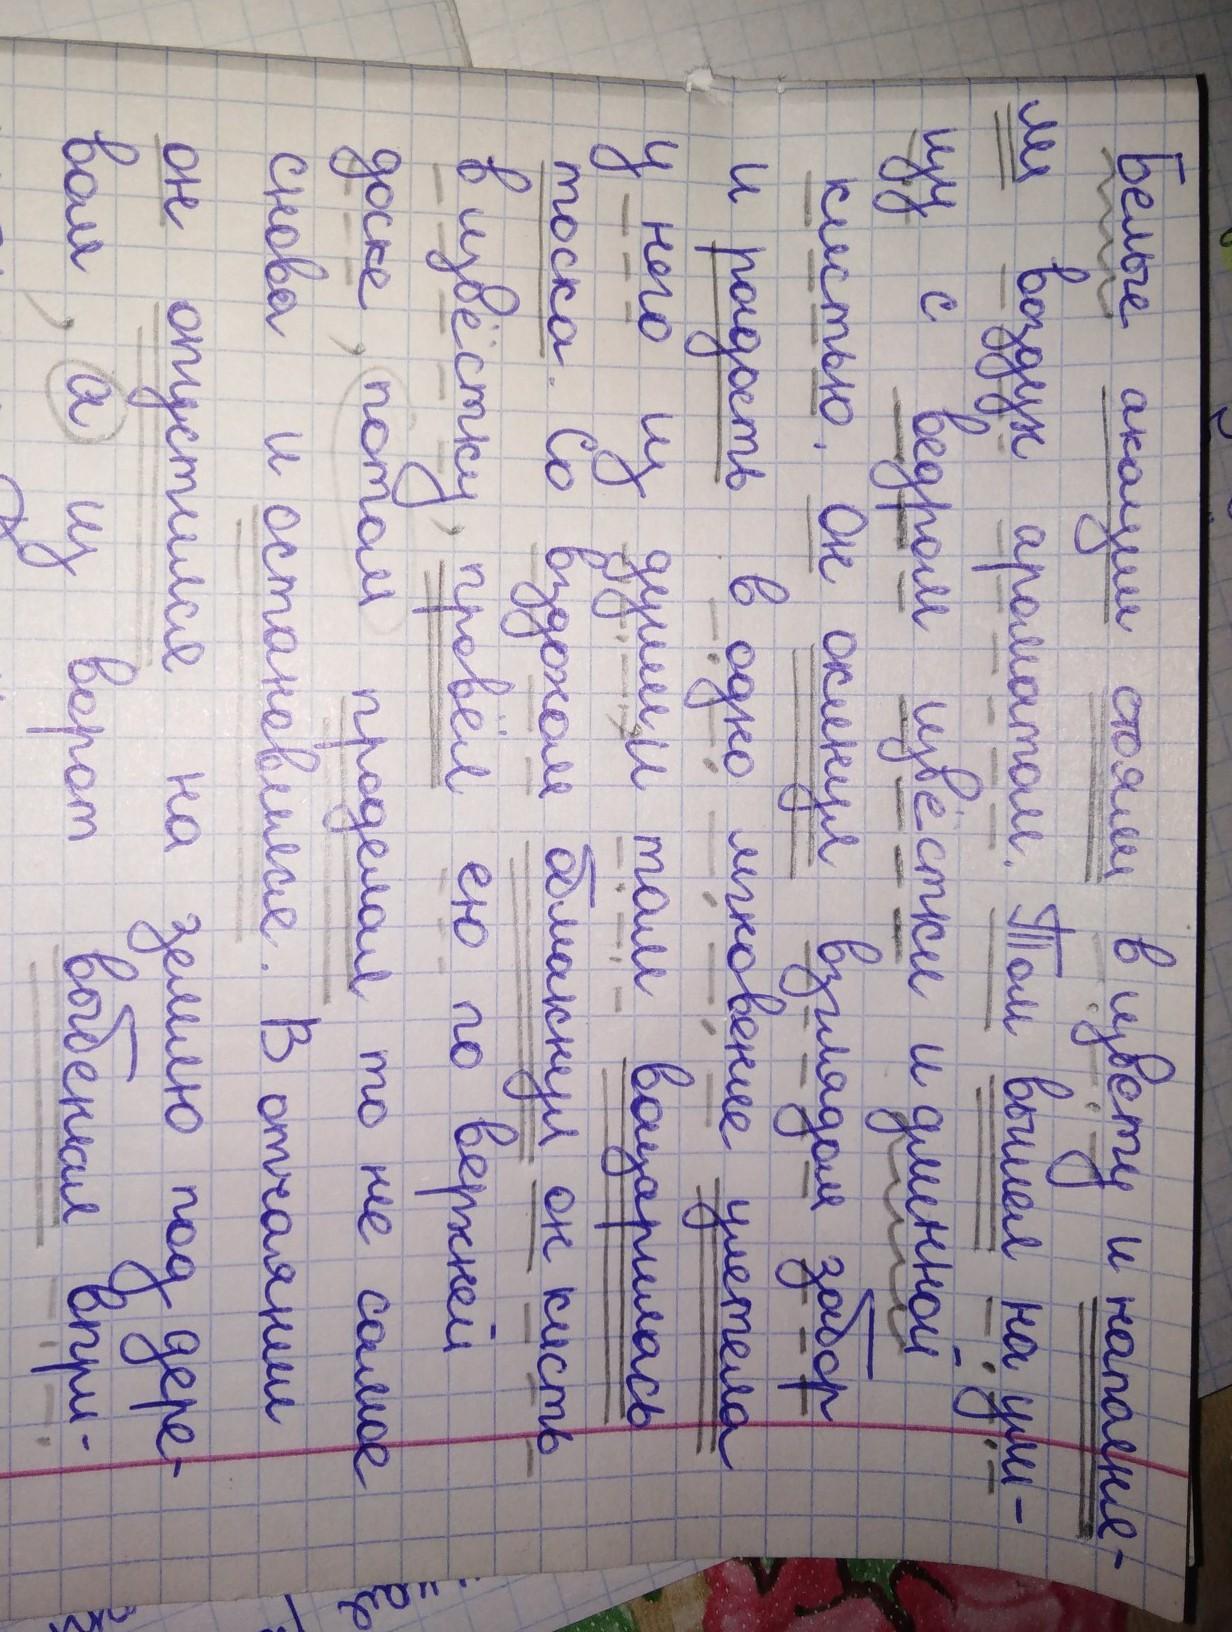 Белые акации стояли в цвету и наполня-
ли воздух ароматом. Том вышел на ули-
цу с ведром извёстки и длинной
кистью. Он окинул взглядом забор
и радость в одно мгновение улетела
у него из души, и там воцарилась
тоска. Со вздохом обмакнул он кисть
в извёстку, провёл ею по верхней
доске, потом проделал то же самое
снова и остановился. В отчаянии
он опустился на землю под дере-
вом, а из ворот выбежал впри-